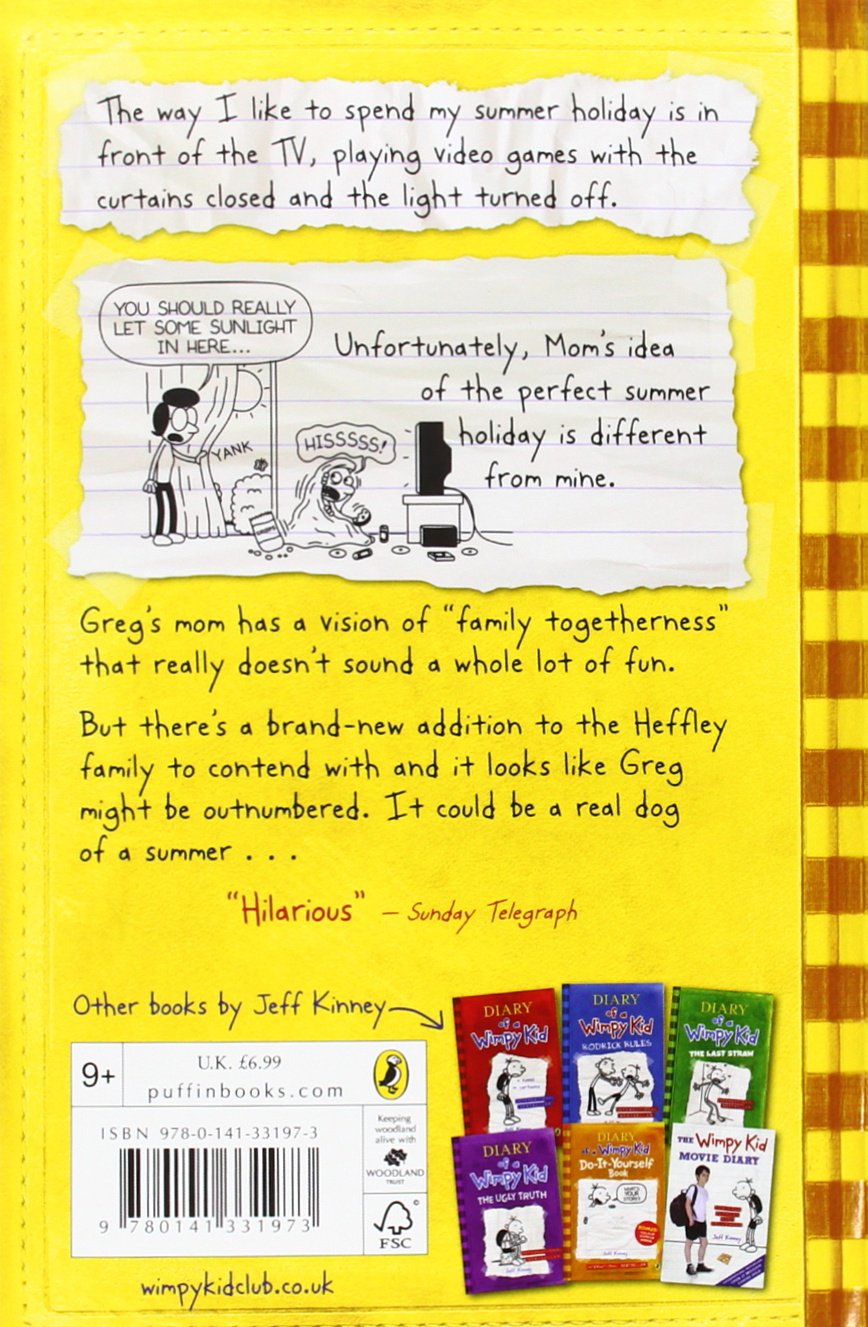 The way I like to spend my summer holiday is in
front of the TV, playing video games with the
curtains closed and the light turned off.
YOU SHOULD REALLY
LET SOME SUNLIGHT
IN HERE...
YANK
HISSSSS!
Unfortunately, Mom's idea
of the perfect summer
holiday is different
from mine.
Greg's mom has a vision of "family togetherness"
that really doesn't sound a whole lot of fun.
But there's a brand-new addition to the Heffley
family to contend with and it looks like Greg
might be outnumbered. It could be a real dog
of a summer . . .
"Hilarious" – Sunday Telegraph
Other books by Jeff Kinney
9+
U.K. £6.99
puffinbooks.com
ISBN 978-0-141-33197-3
9 780141 331973
Keeping
woodland
alive with
WOODLAND
TRUST
FSC
wimpykidclub.co.uk
DIARY
of a
Wimpy Kid
DIARY
of a
Wimpy Kid
RODRICK RULES
DIARY
of a
Wimpy Kid
THE LAST STRAW
DIARY
of a
Wimpy Kid
THE UGLY TRUTH
Jeff Kinney
DIARY
of a Wimpy Kid
Do-It-Yourself
Book
WHAT'S
YOUR
STORY?
Jeff Kinney
THE Wimpy Kid
MOVIE DIARY
Jeff Kinney